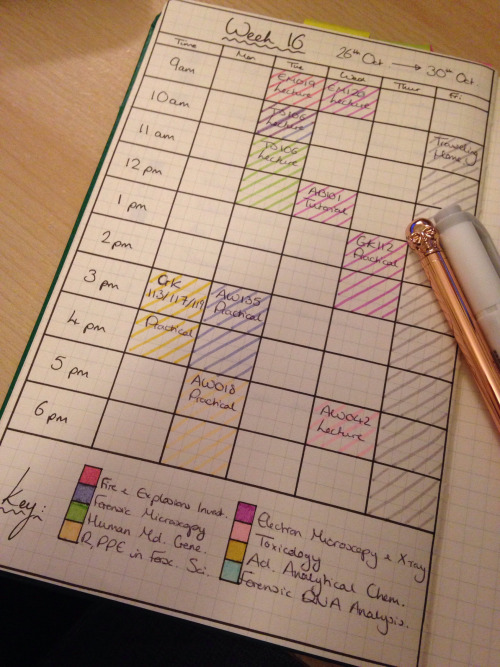 Week 16
26th Oct → 30th Oct
Time Mon Tue Wed Thur Fri
9am
EM019 Lecture
EM120 Lecture
10am
Lecture
11am
TS106 Lecture
Traveling Home
12pm
1pm
AB101 Tutorial
2pm
GK112 Practical
3pm
GK 113/117/119
AW135 Practical
4pm
Practical
5pm
AW018 Practical
6pm
AW042 Lecture
Key:
Fire & Explosions Invest.
Forensic Microscopy
Human Mol. Gene.
R, PPE in Forx. Sci.
Electron Microscopy & Xray
Toxicology
Ad. Analytical Chem.
Forensic DNA Analysis.